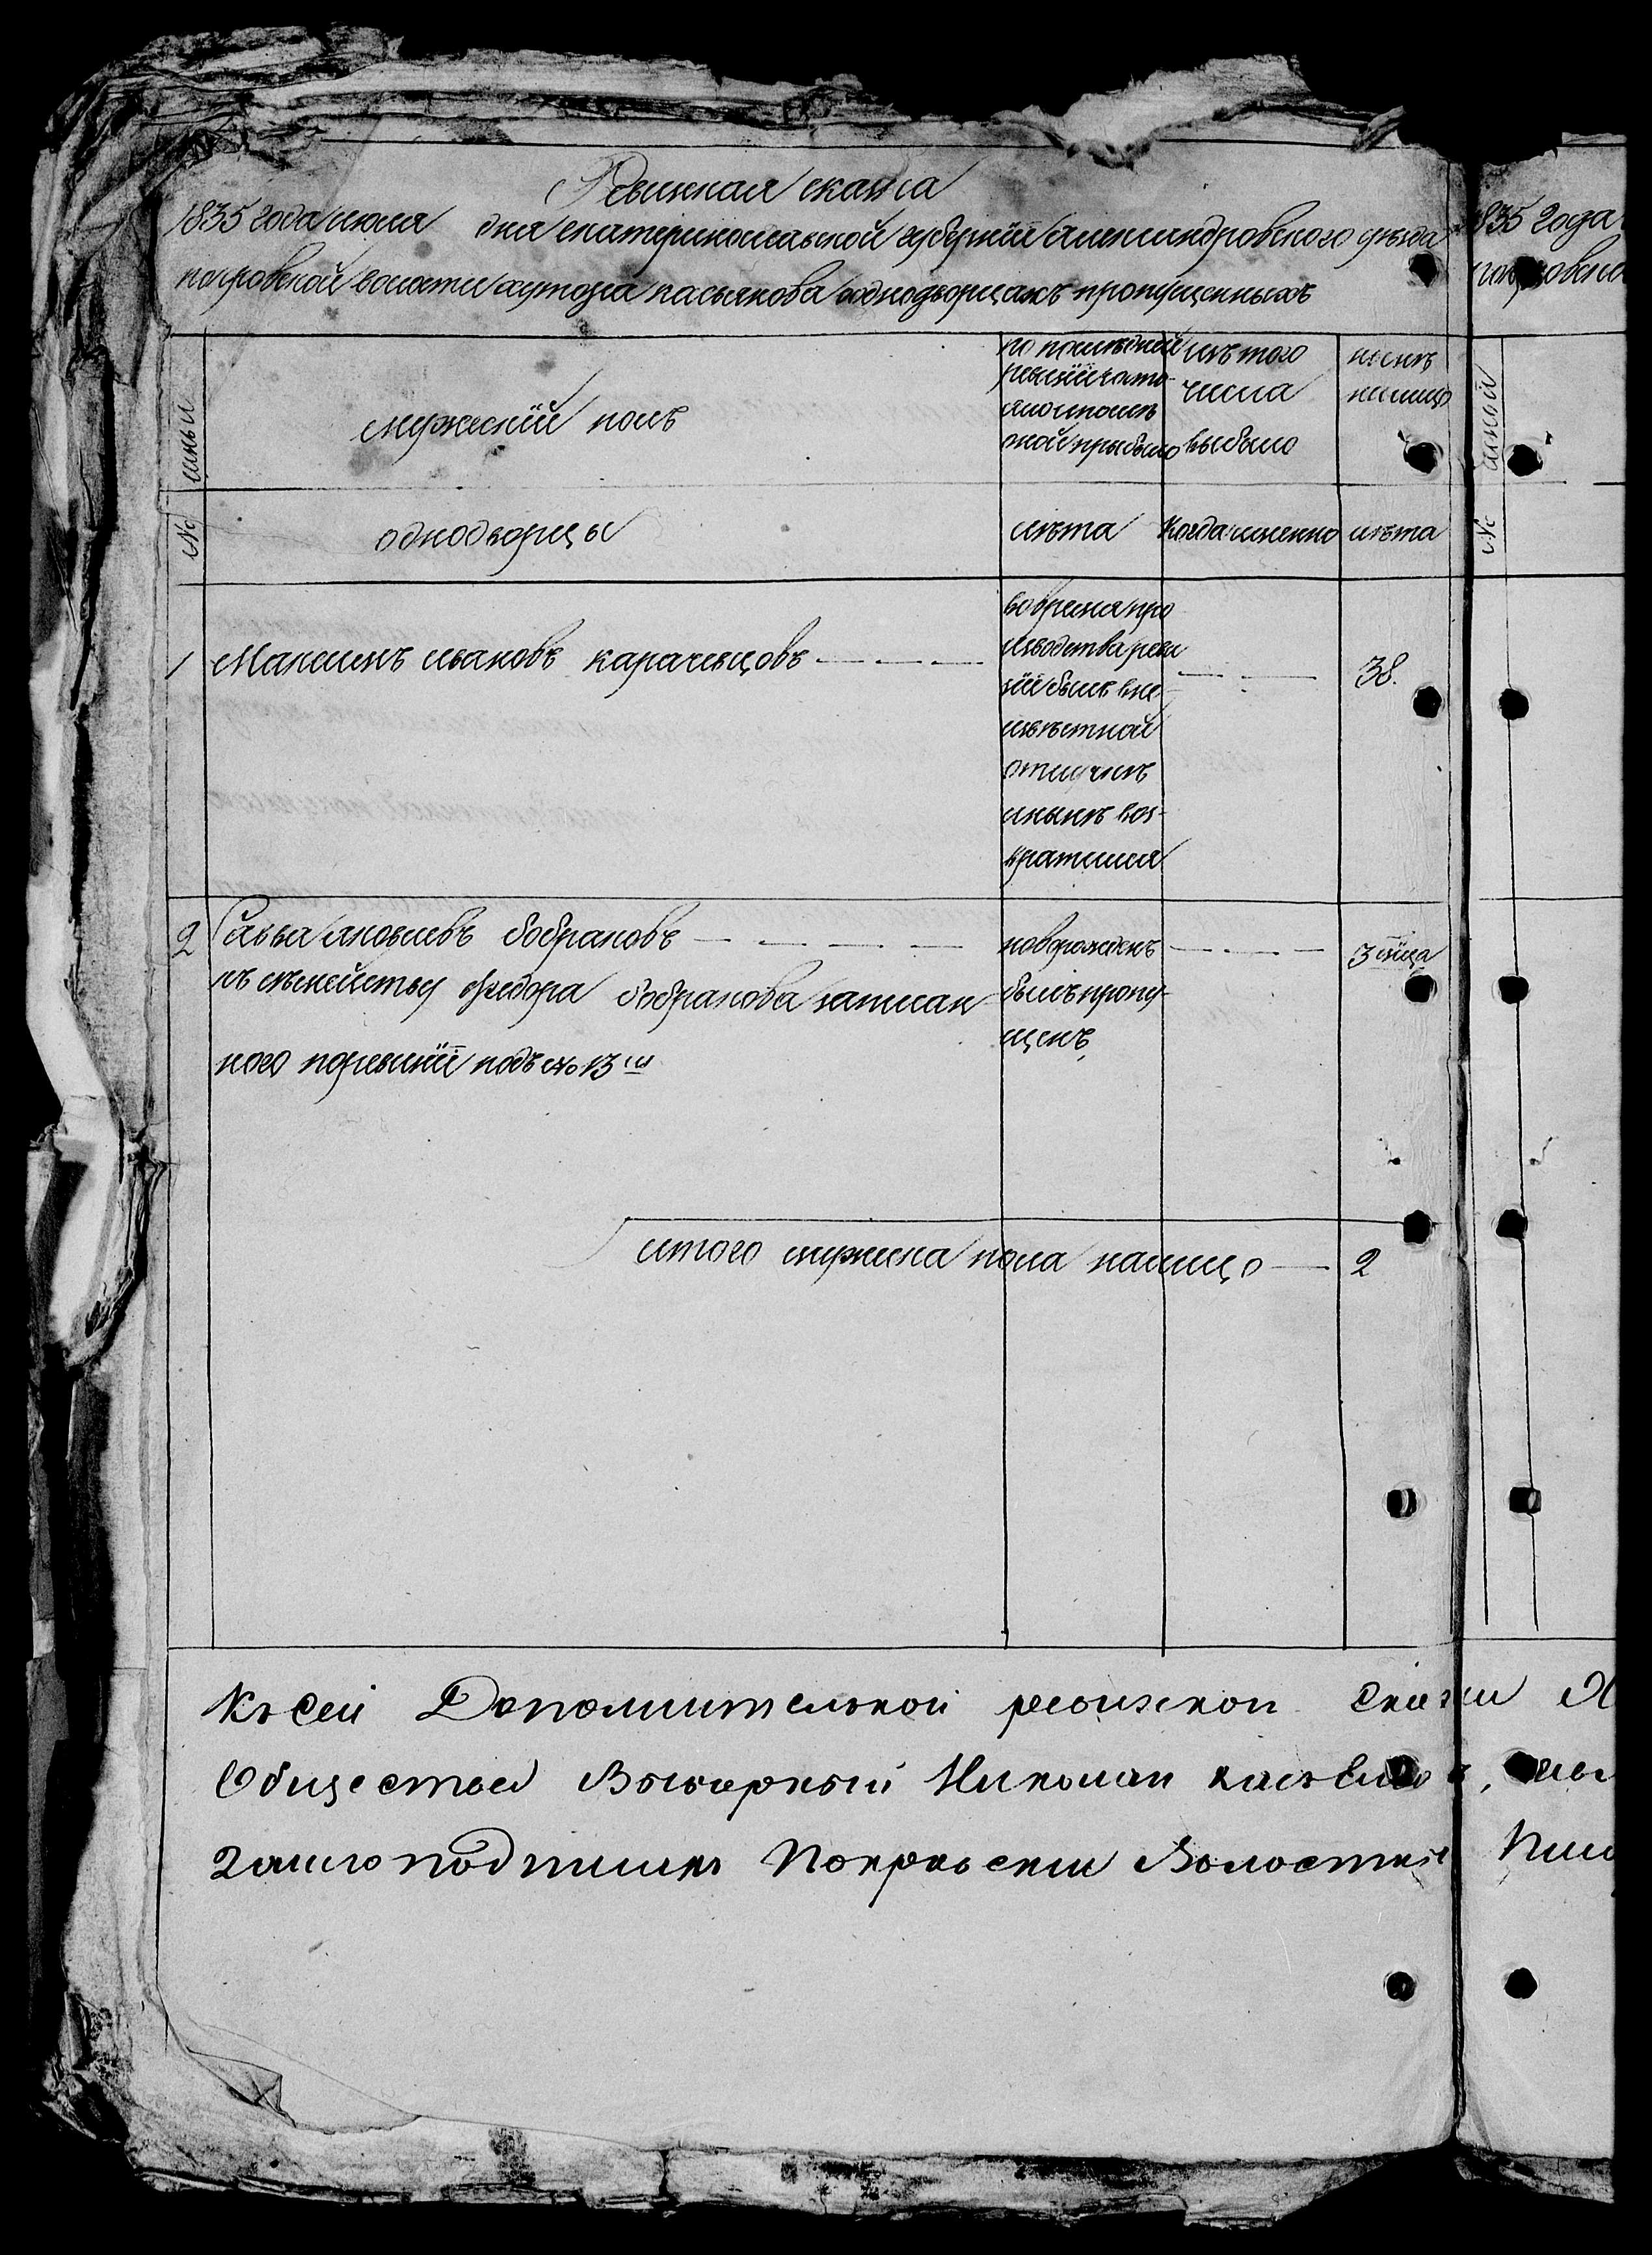 Ревижная скаска
1835 года июля дня екатеринославской губернiи александровского уезда
покровской волости хутора касьянова однодворцахъ пропущенныхъ
№ семьи
мужескiй полъ
по последней
ревизiи состо-
яло и после
оной прибыло
изъ того
числа
выбыло
ныне
налицо
однодворцы
лета
когда именно
лета
1 Максимъ ивановъ карачевцовъ
во время про
изводства реви
зiи былъ в не
известной
отлучке
и ныне воз-
вратился
38.
2 Савва яковлевъ бобраковъ
къ семейству федора бобракова записан
ного по ревизiи подъ № 13м
новорожденъ
былъ пропу-
щенъ
3 мсца
итого мужска пола налицо 2
Къ сей Дополнительной ревизской Сказки
Общества Выборный Николай
Покровски Волостны
1835 года
№